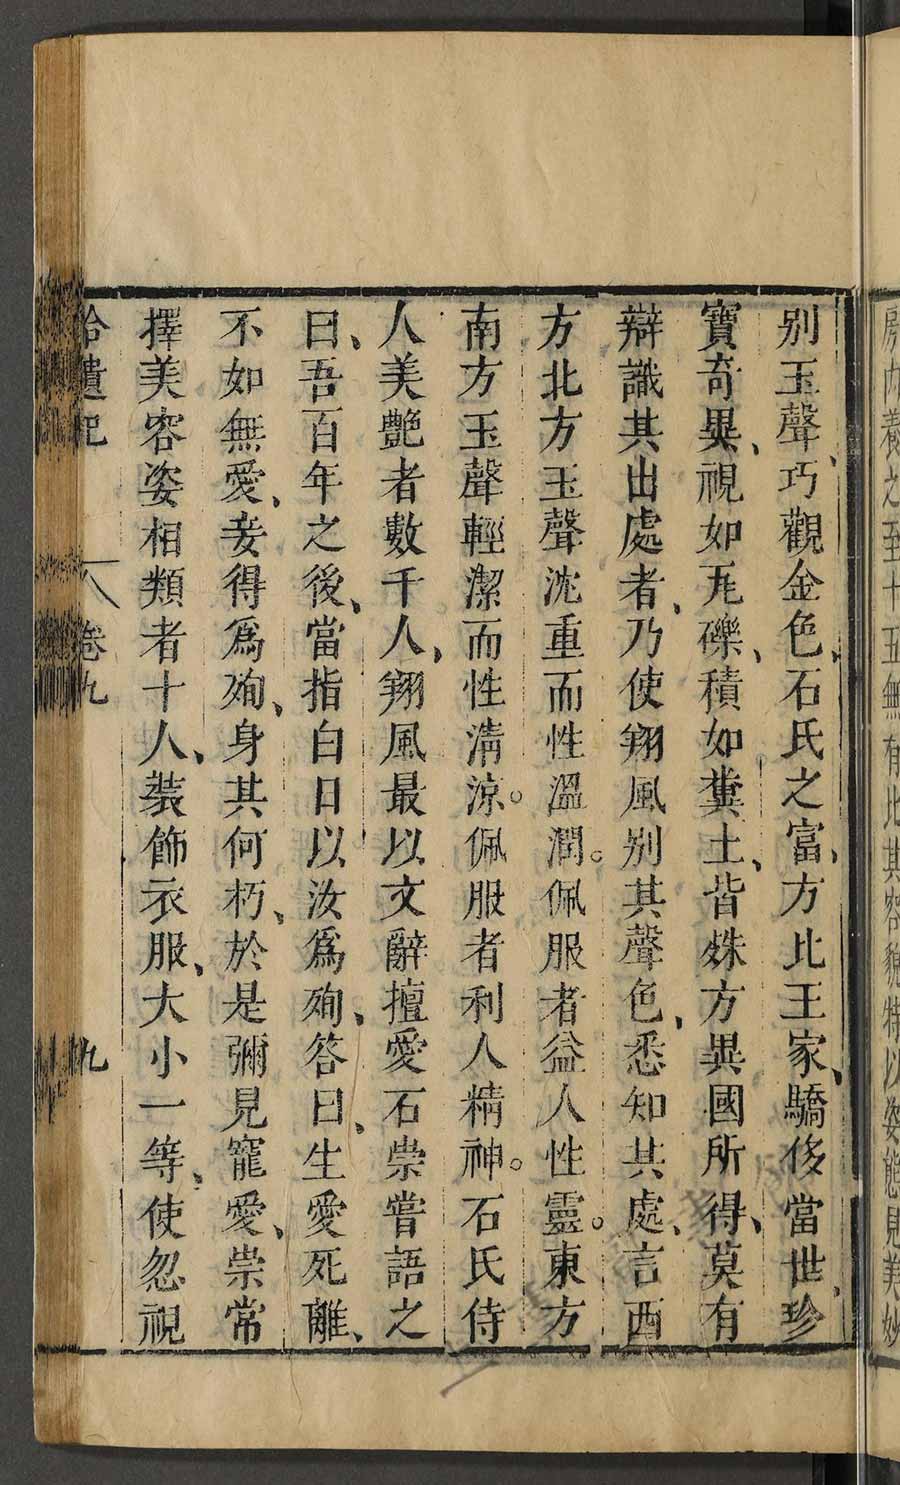 房内養之至十五無有比其容貌特以姿態見美妙
别玉聲、巧觀金色、石氏之富、方比王家、驕侈當世、珍
寶奇異、視如瓦礫、積如糞土、皆殊方異國所得、莫有
辯識其出處者、乃使翔風别其聲色、悉知其處、言西
方北方玉聲沈重而性溫潤。佩服者益人性靈。東方
南方玉聲輕潔而性清涼。佩服者利人精神。石氏侍
人美艷者數千人、翔風最以文辭擅愛石崇嘗語之
曰、吾百年之後、當指白日以汝爲殉、答曰、生愛死離、
不如無愛、妾得爲殉、身其何朽、於是彌見寵愛、崇常
擇美容姿相類者十人、裝飾衣服、大小一等、使忽視
拾遺記 卷九 九